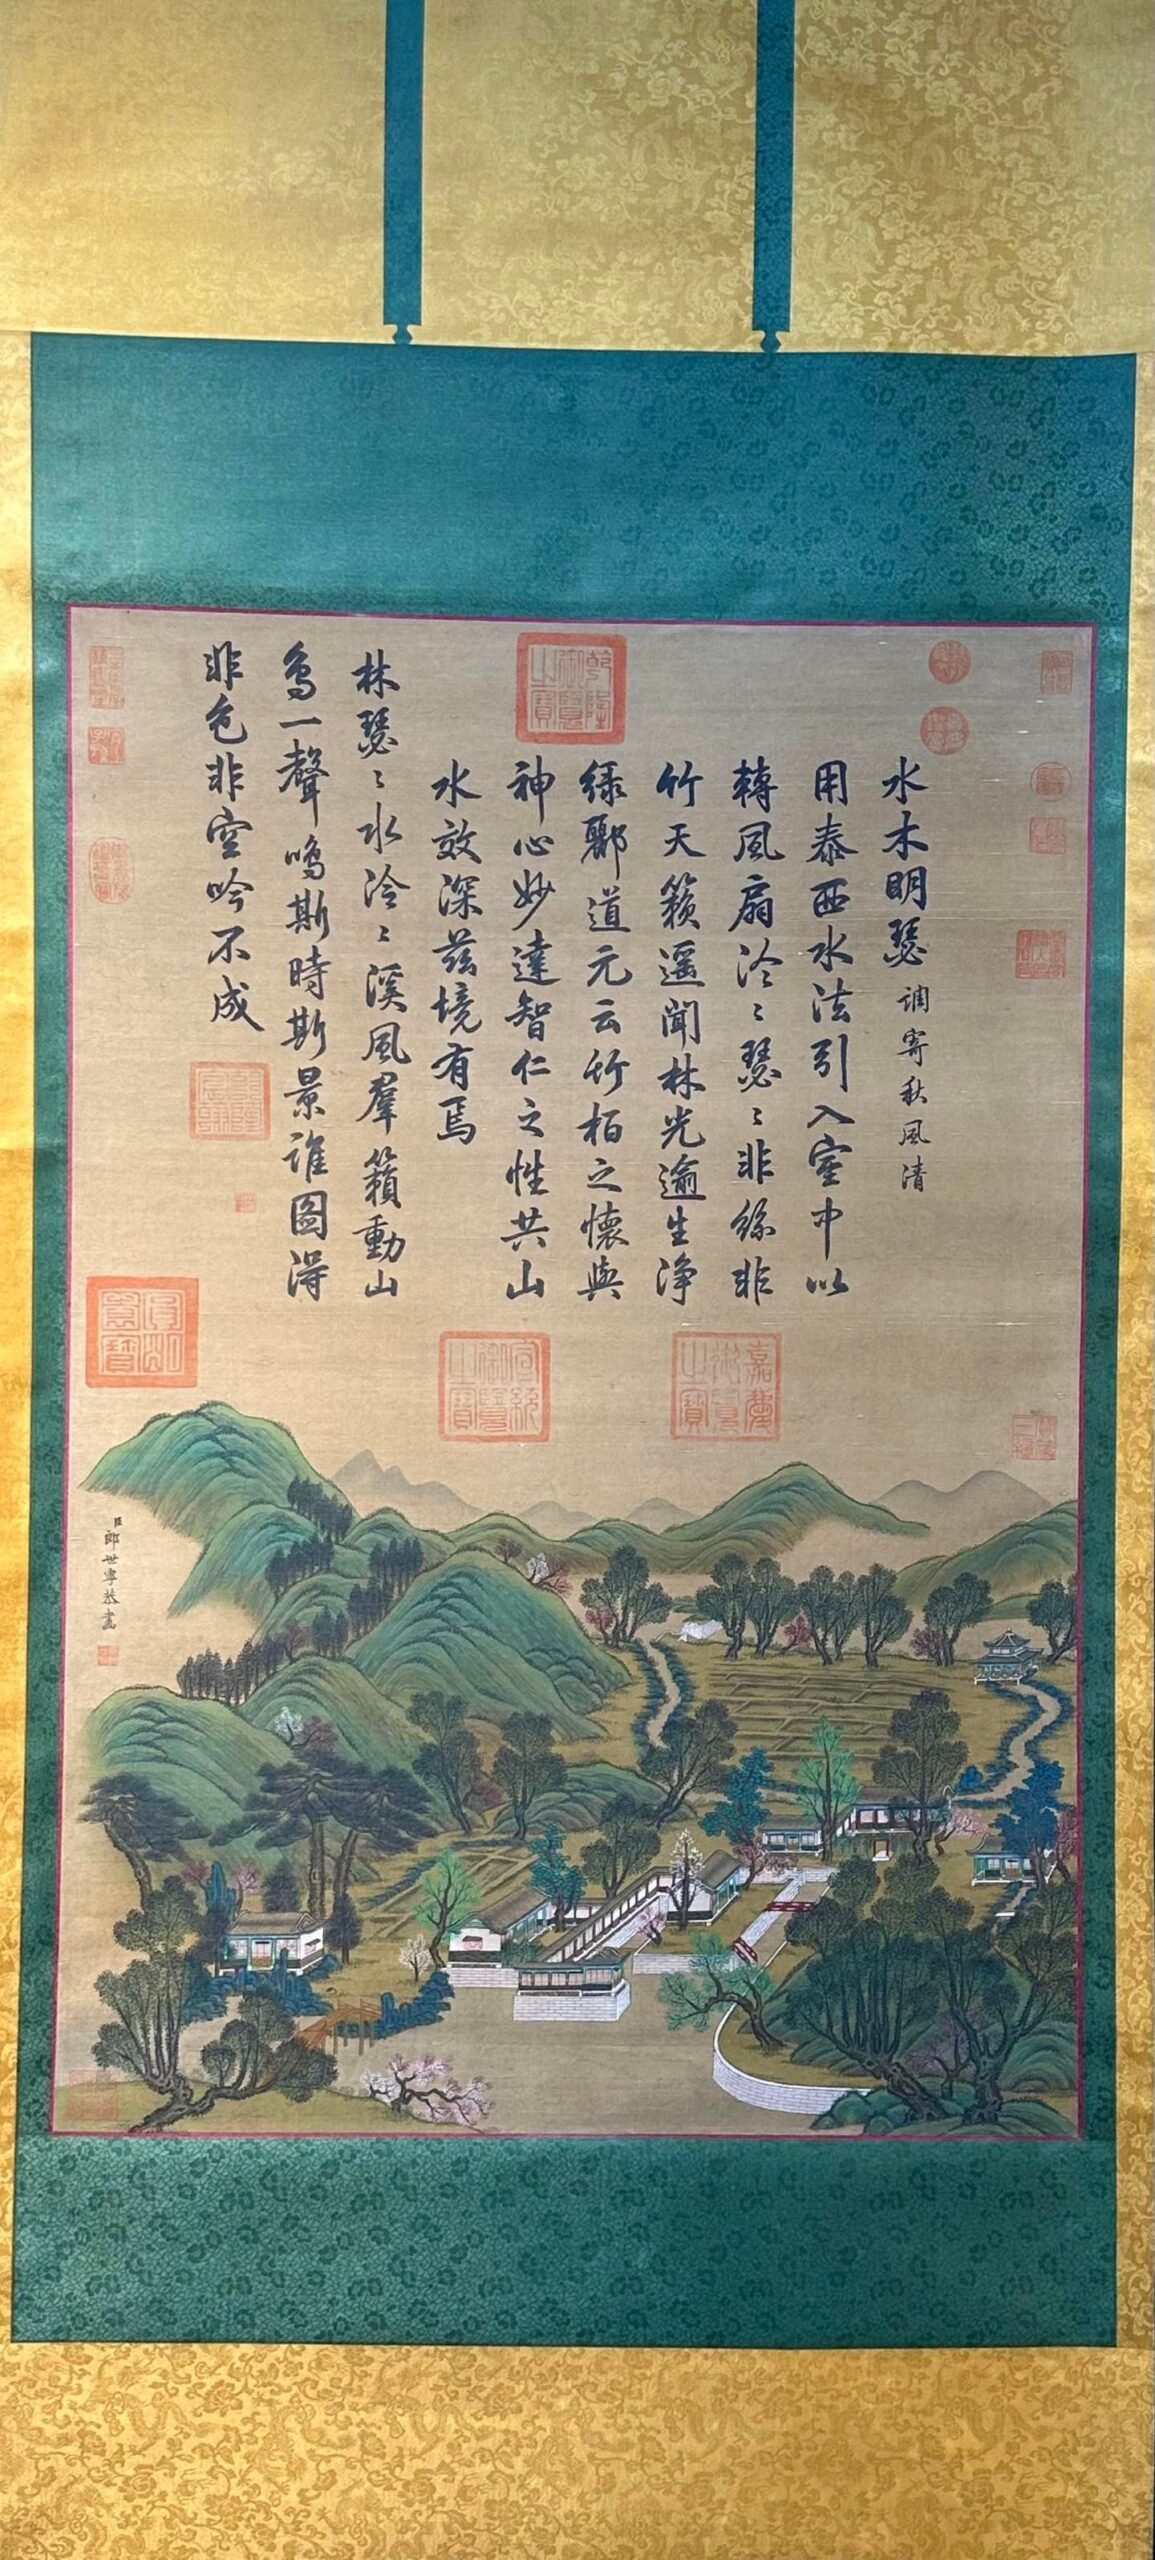 水木明瑟 調寄秋風清
用泰西水法引入室中以
轉風扇泠〻瑟〻非絲非
竹天籟遥聞林光逾生淨
緑酈道元云竹栢之懷與
神心妙達智仁之性共山
水效深茲境有焉
林瑟〻水泠〻溪風羣籟動山
鳥一聲鳴斯時斯景誰圖得
非色非空吟不成
乾隆御覽之寶
嘉慶御覽之寶
宣統御覽之寶
臣郎世寧恭畫